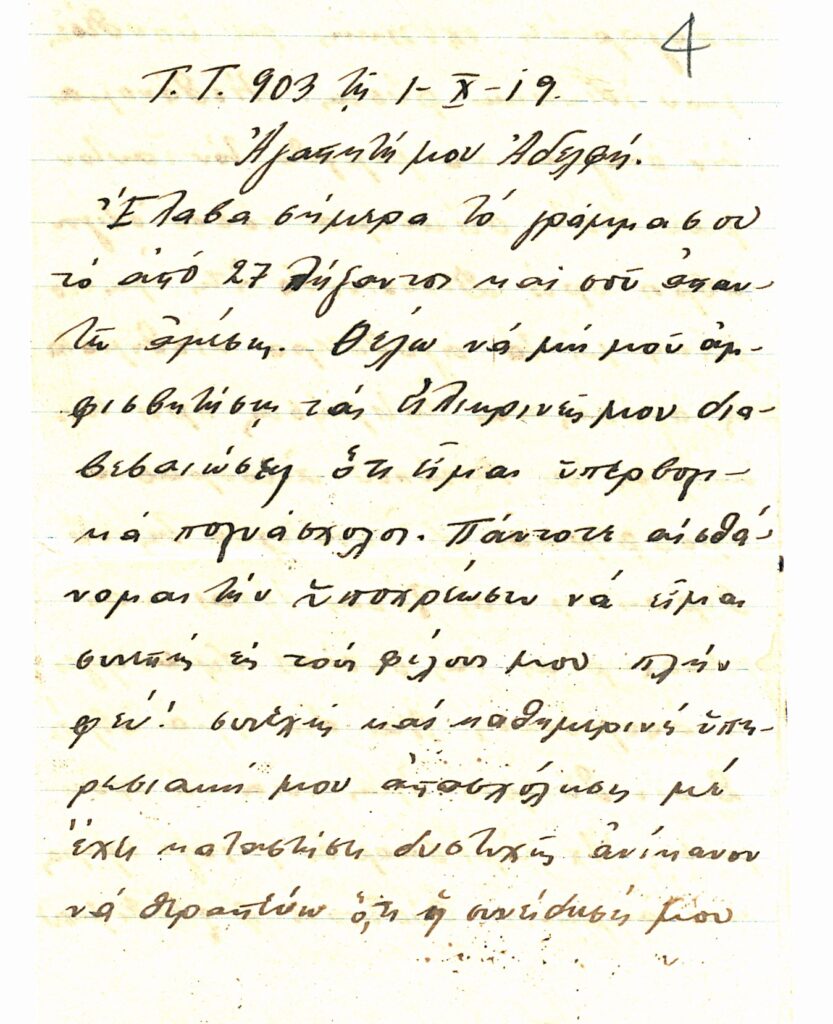 4
Τ.Τ. 903 τῇ 1-Χ-19.
Ἀγαπητή μου Ἀδελφή.
Ἔλαβα σήμερα τό γράμμα σου
τό ἀπό 27 λήξαντος καί σοῦ ἀπαν-
τῶ ἀμέσως. Θέλω νά μή μοῦ ἀμ-
φισβητήσης τάς εἰλικρινεῖς μου δια-
βεβαιώσεις ὅτι εἶμαι ὑπερβολ-
ικά πολυάσχολος. Πάντοτε αἰσθά-
νομαι τήν ὑποχρέωσιν νά εἶμαι
συνεπής εἰς τούς φίλους μου πλήν
φεῦ! συνεχής καί καθημερινή ὑπη-
ρεσιακή μου ἀπασχόλησις μέ
ἔχει καταστήσει δυστυχῶς ἀνίκανον
νά θεραπεύω ὅ,τι ἡ συνείδησή μου